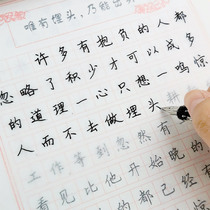 唯有埋头,乃能出
许多有抱负的人都
忽略了积少才可以成多
的道理一心只想一鸣惊
人而不去做埋头耕
工作等到忽然有
看见比他开始晚的
的都已经有